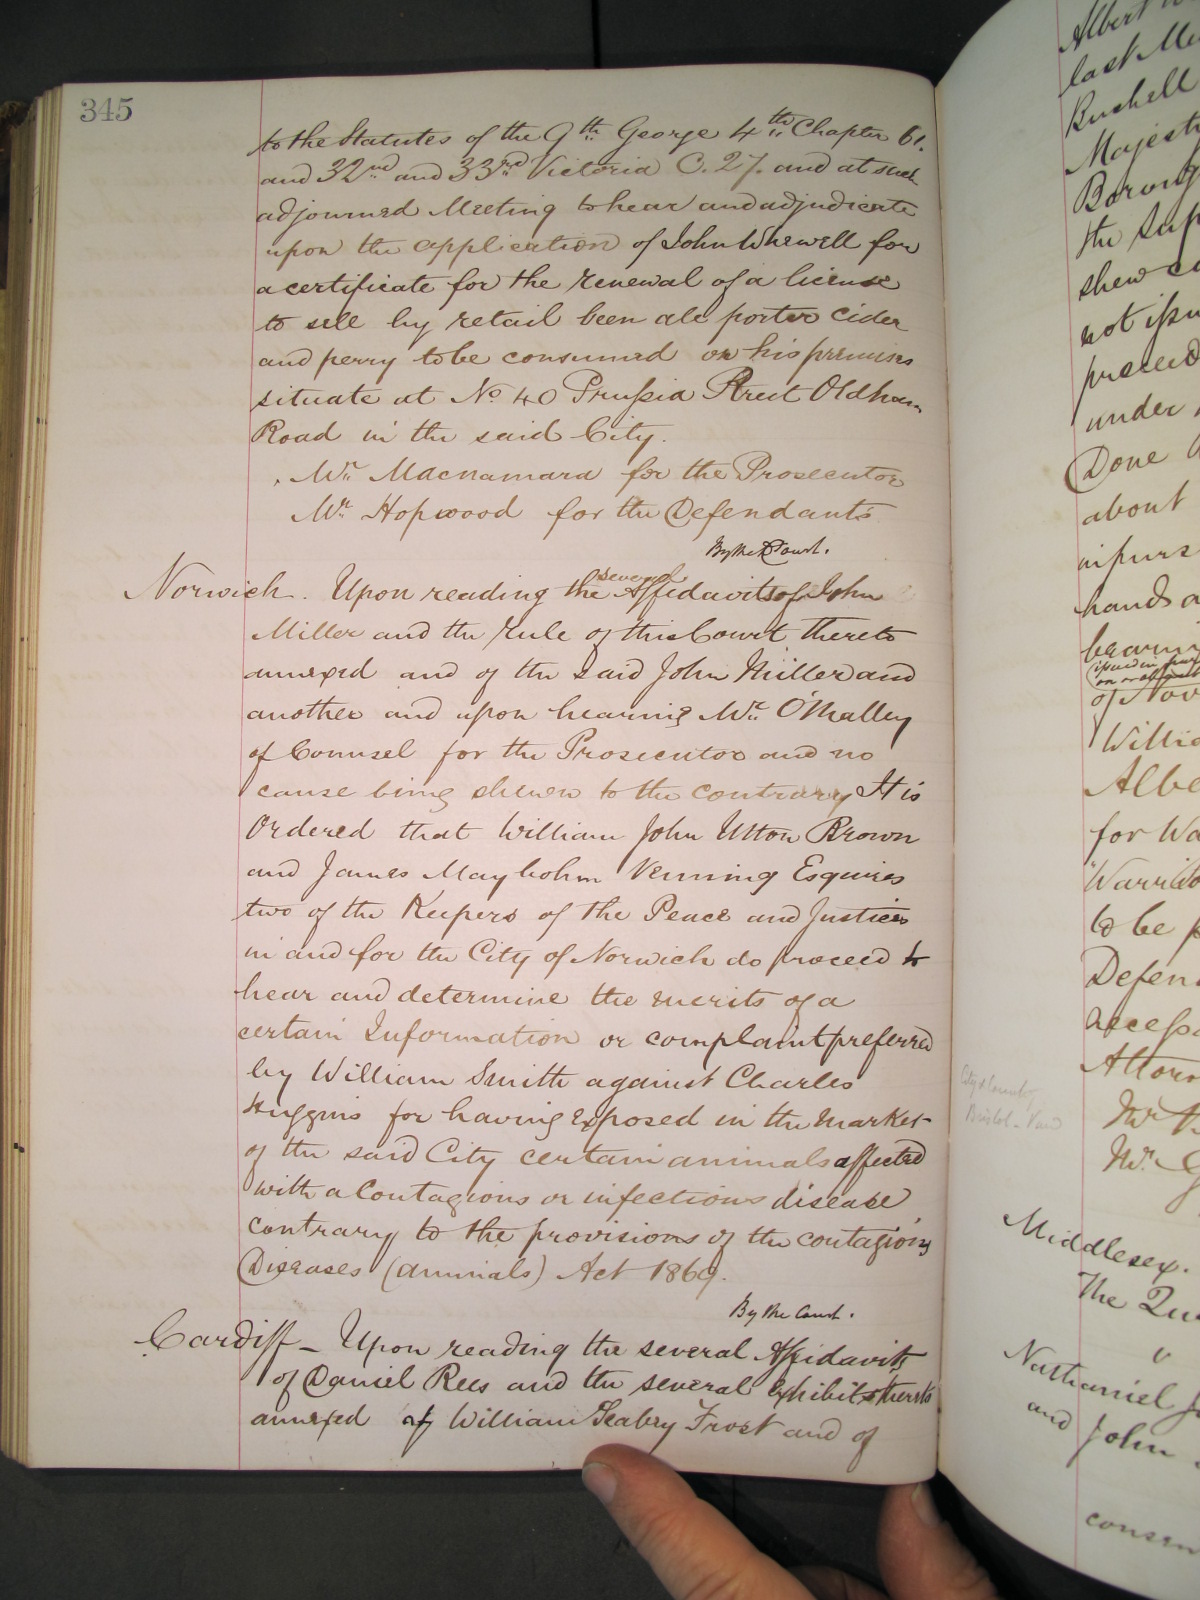 345
to the Statutes of the 9th George 4th Chapter 61.
and 32nd and 33rd Victoria C. 27. and at such
adjourned Meeting to hear and adjudicate
upon the application of John Whewell for
a certificate for the renewal of a license
to sell by retail beer ale porter cider
and perry to be consumed on his premises
situate at No 40 Prussia Street Oldham
Road in the said City.
Mr. Macnamara for the Prosecutor
Mr. Hopwood for the Defendants
By the Court.
Norwich. Upon reading the several Affidavits of John
Miller and the Rule of this Court thereto
annexed and of the said John Miller and
another and upon hearing Mr. O'Malley
of Counsel for the Prosecutor and no
cause being shewn to the contrary It is
Ordered that William John Utton Brown
and James Mayhohm Venning Esquires
two of the Keepers of the Peace and Justices
in and for the City of Norwich do proceed to
hear and determine the merits of a
certain Information or complaint preferred
by William Smith against Charles
Huggins for having exposed in the Market
of the said City certain animals affected
with a Contagious or infectious disease
contrary to the provisions of the contagious
Diseases (Animals) Act 1869.
By the Court.
Cardiff – Upon reading the several Affidavits
of Daniel Rees and the several Exhibits thereto
annexed of William Seabry Frost and of
Albert
last
Bushell
Majest
Boroug
the Sup
shew ca
not issu
proceed
under
Done
about
hands a
bearing
of Nov
Willia
Albe
for Wa
Warrido
to be p
Defen
accesso
Attor
Mr
Mr.
Middlesex.
The Que
Nathaniel
and John
consen
City & County
Bristol